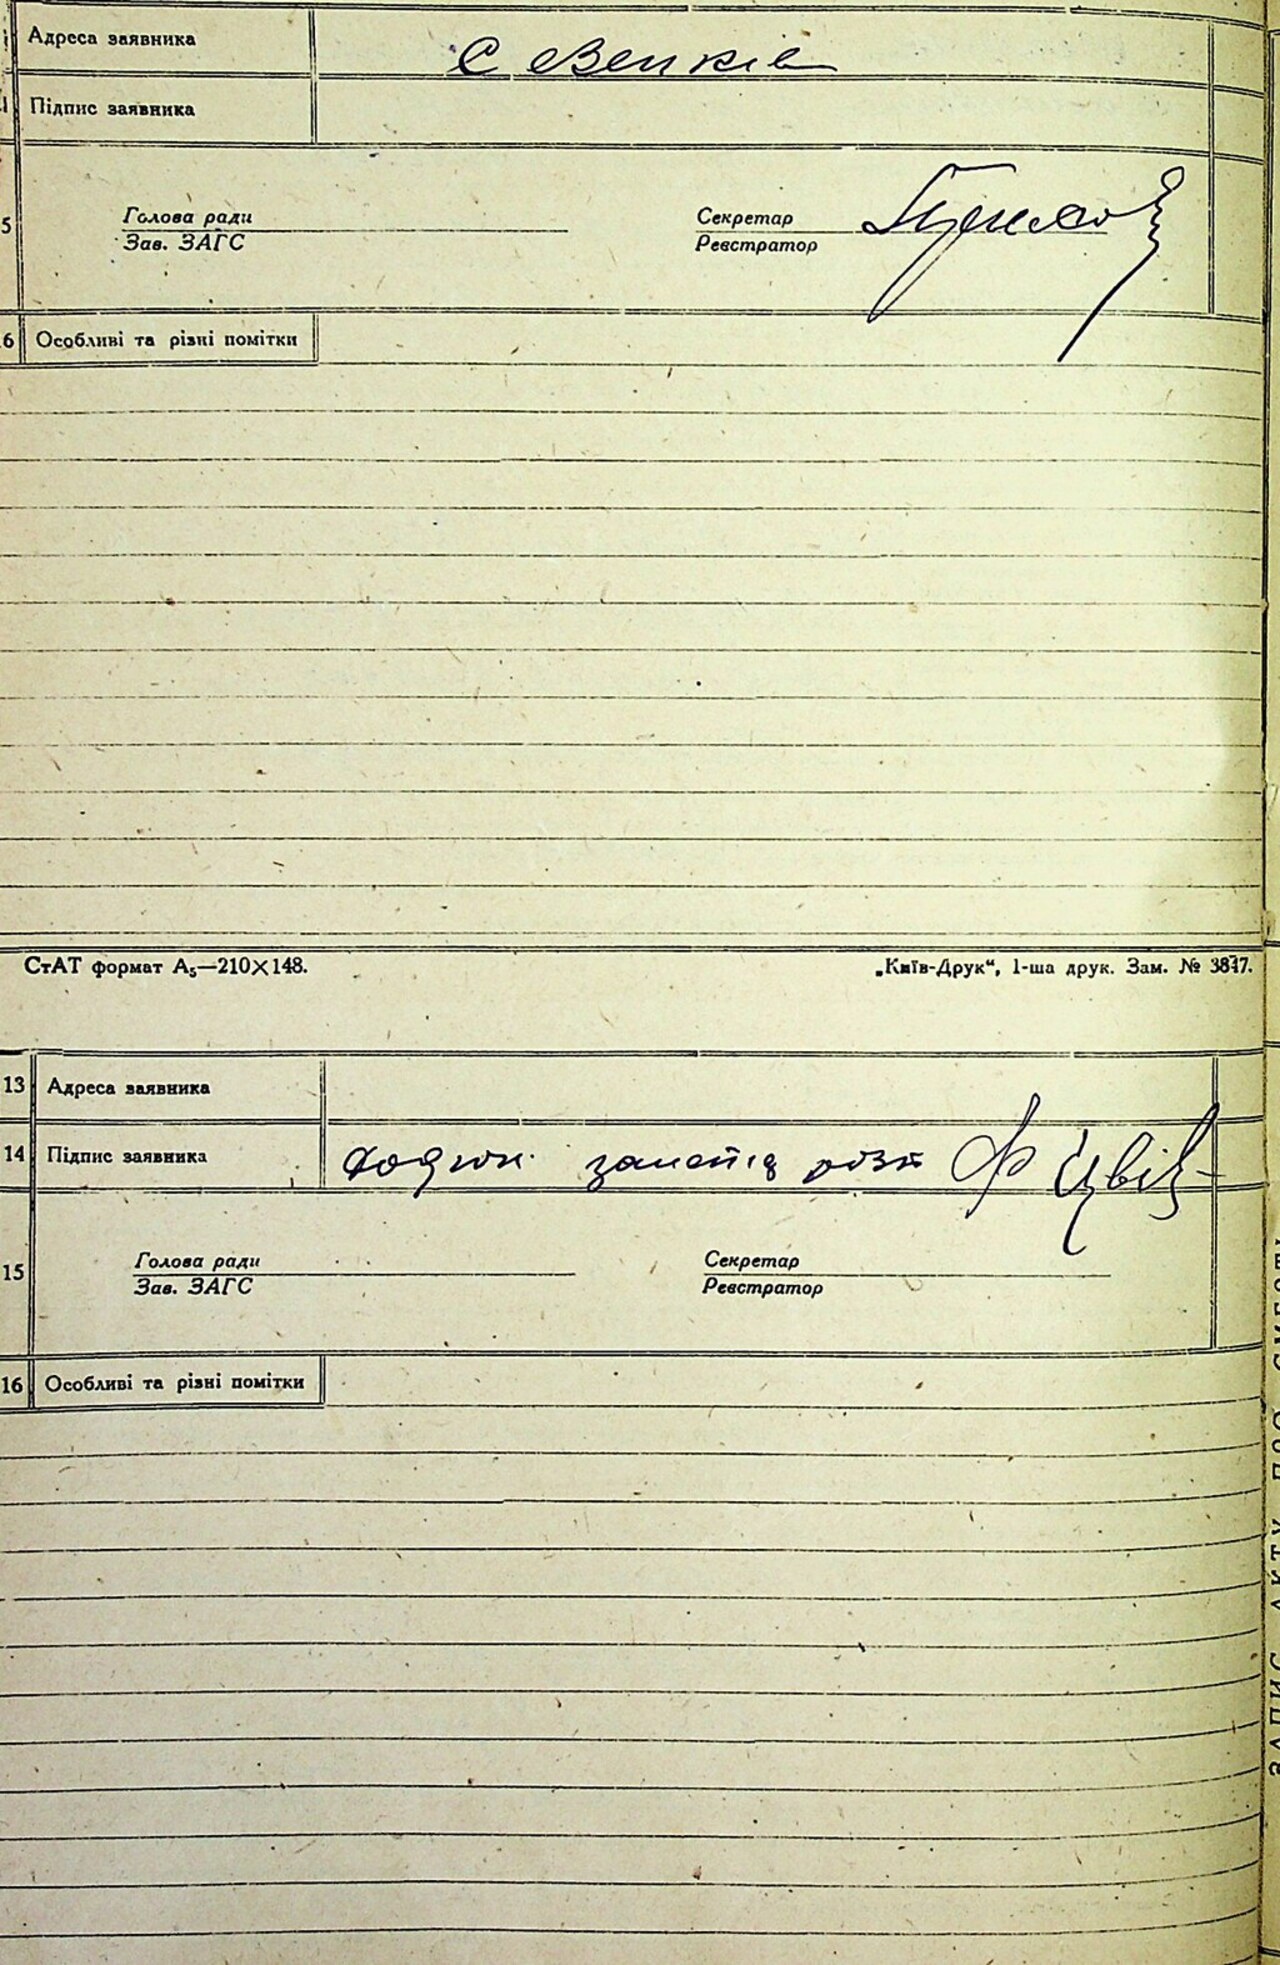 Адреса заявника
с Велпків
Підпис заявника
5 Голова ради Секретар
Зав. ЗАГС Реєстратор
6 Особливі та різні помітки
СтАТ формат А5—210×148.
„Київ-Друк“, 1-ша друк. Зам. № 3847.
13 Адреса заявника
14 Підпис заявника Ф Цвік
15 Голова ради Секретар
Зав. ЗАГС Реєстратор
16 Особливі та різні помітки
ЗАПИС АКТУ ПРО СМЕРТЬ